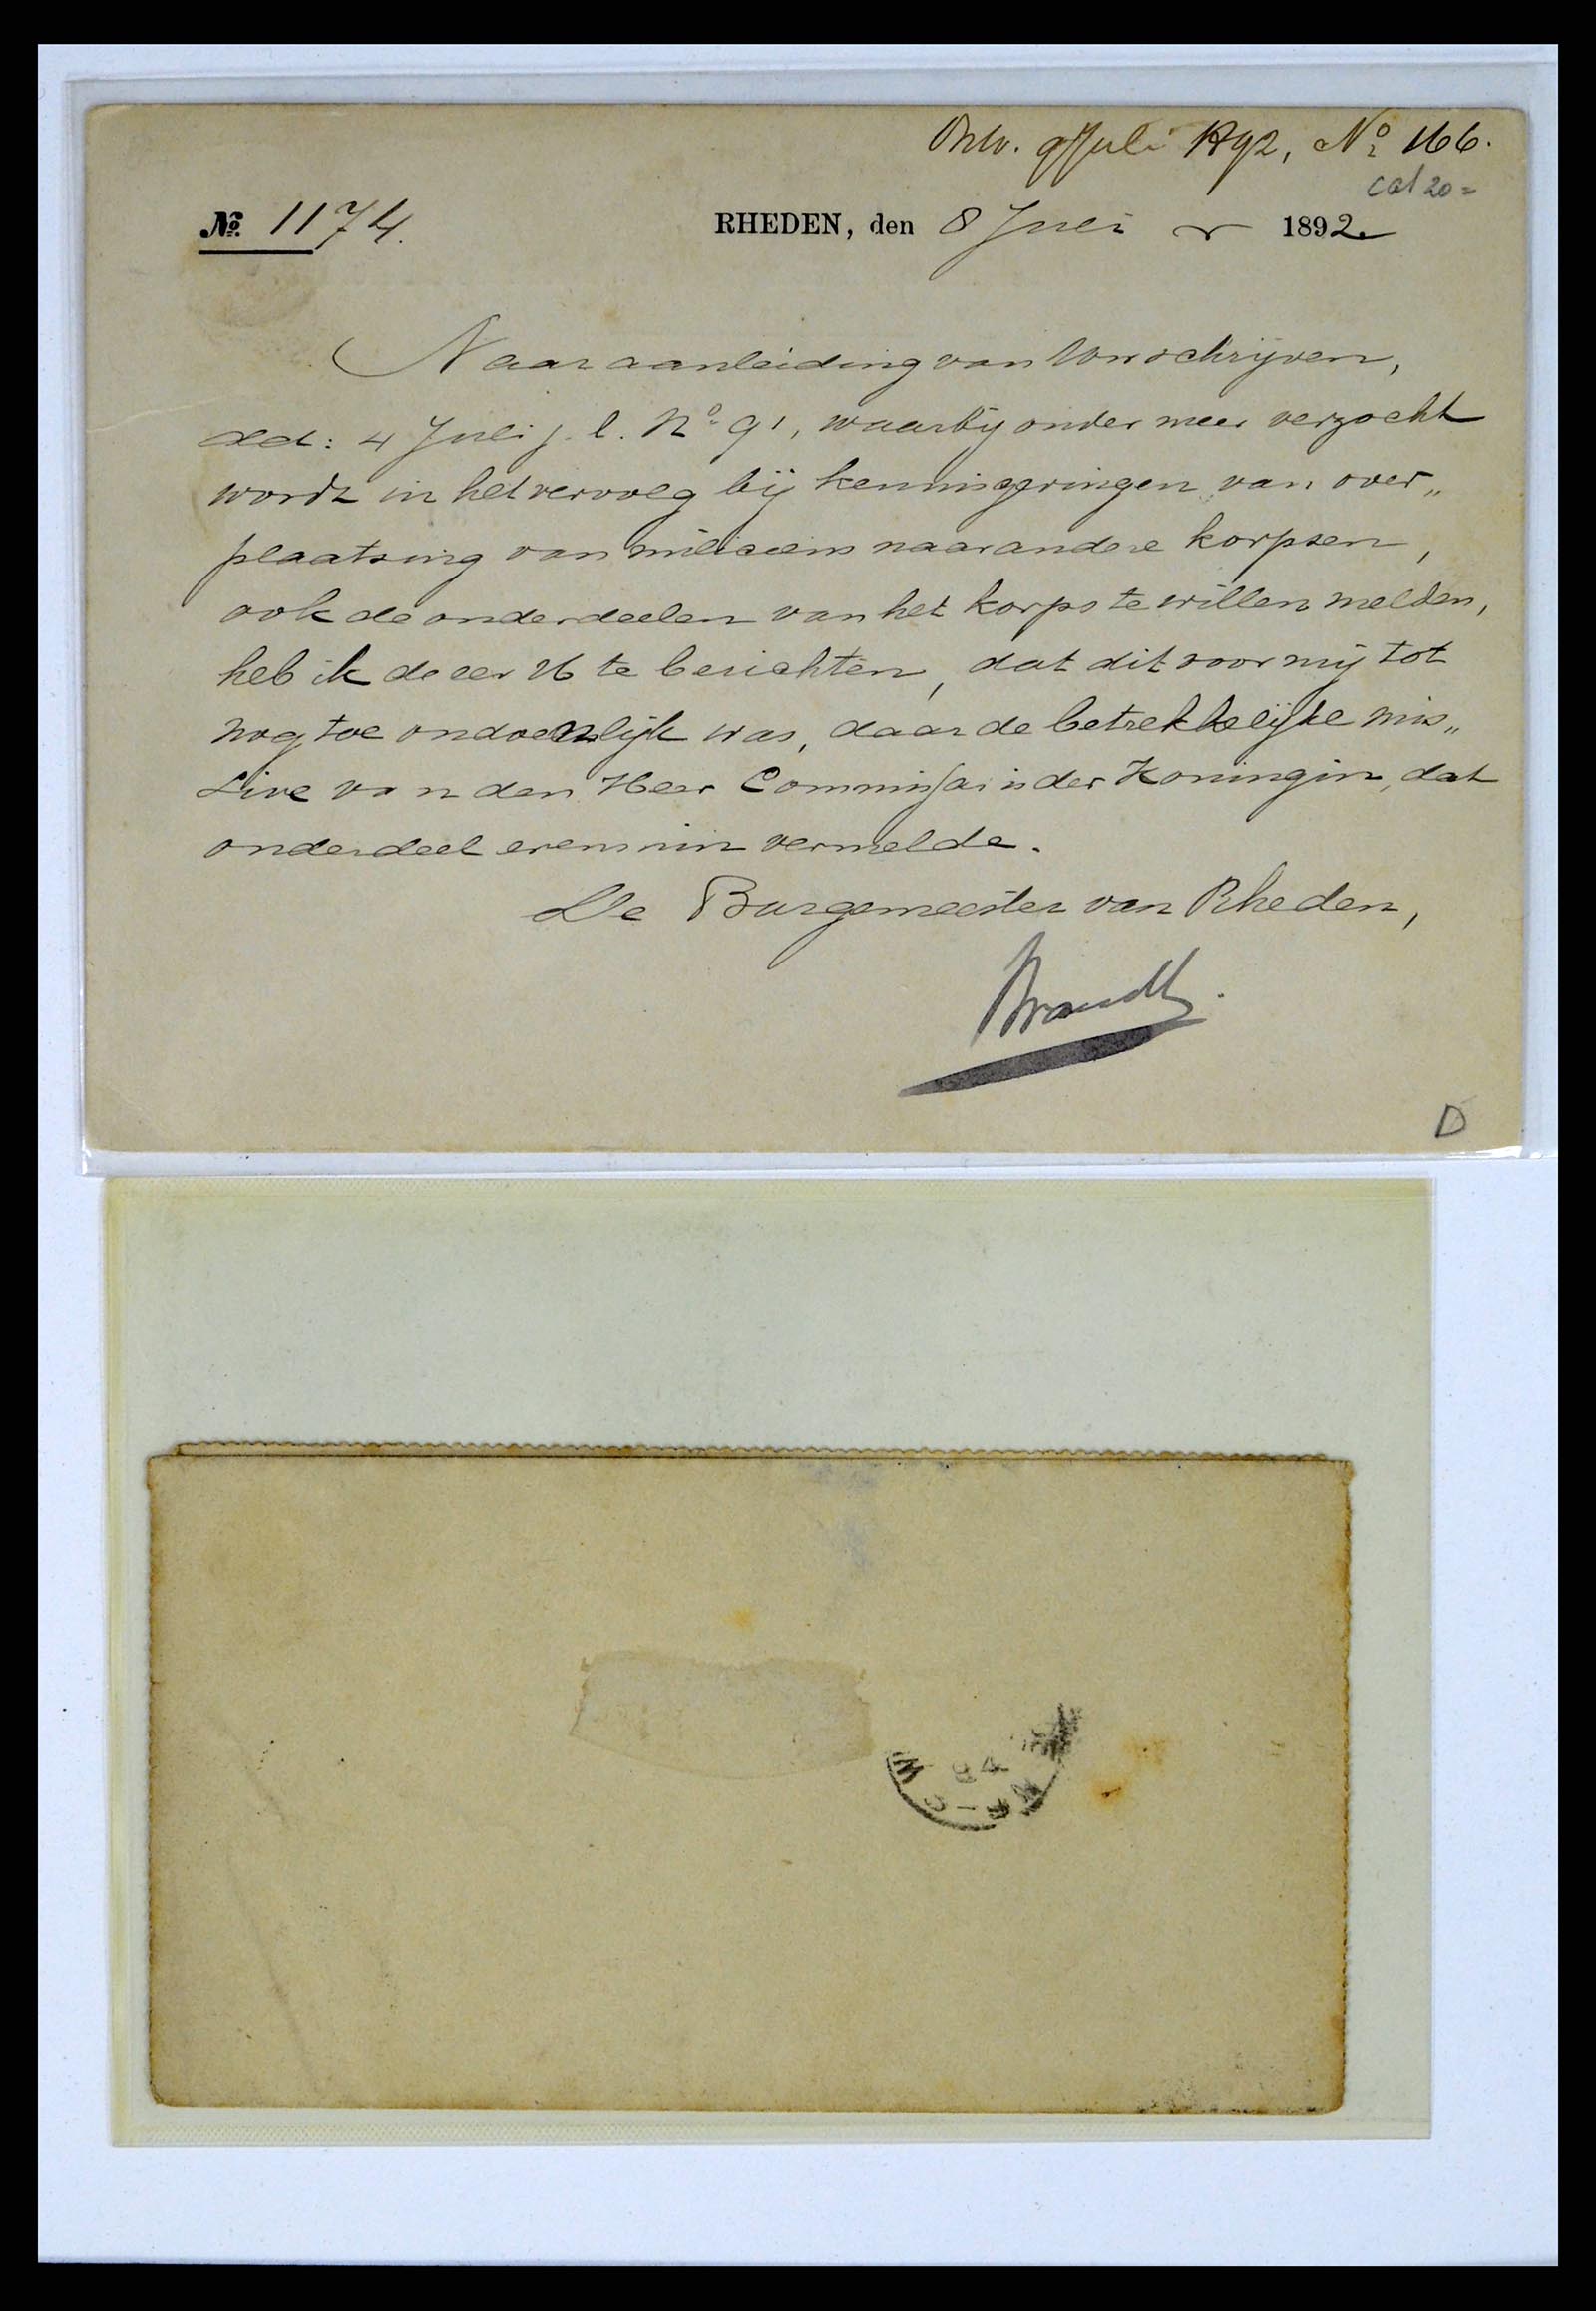 Ontv. 9 Juli 1892, No 166.
cat 20=
No. 1174. RHEDEN, den 8 Juli 1892
Naar aanleiding van Uw schrijven,
dd: 4 Juli j.l. No 91, waarbij onder meer verzocht
wordt in het vervolg bij kennisgevingen van over„
plaatsing van miliciens naar andere korpsen,
ook de onderdeelen van het korps te willen melden,
heb ik de eer U te berichten, dat dit voor mij tot
nog toe ondoenlijk was, daar de betrekkelijke mis„
sive van den Heer Commissaris der Koningin, dat
onderdeel evenmin vermelde.
De Burgemeester van Rheden,
Brandt.
D